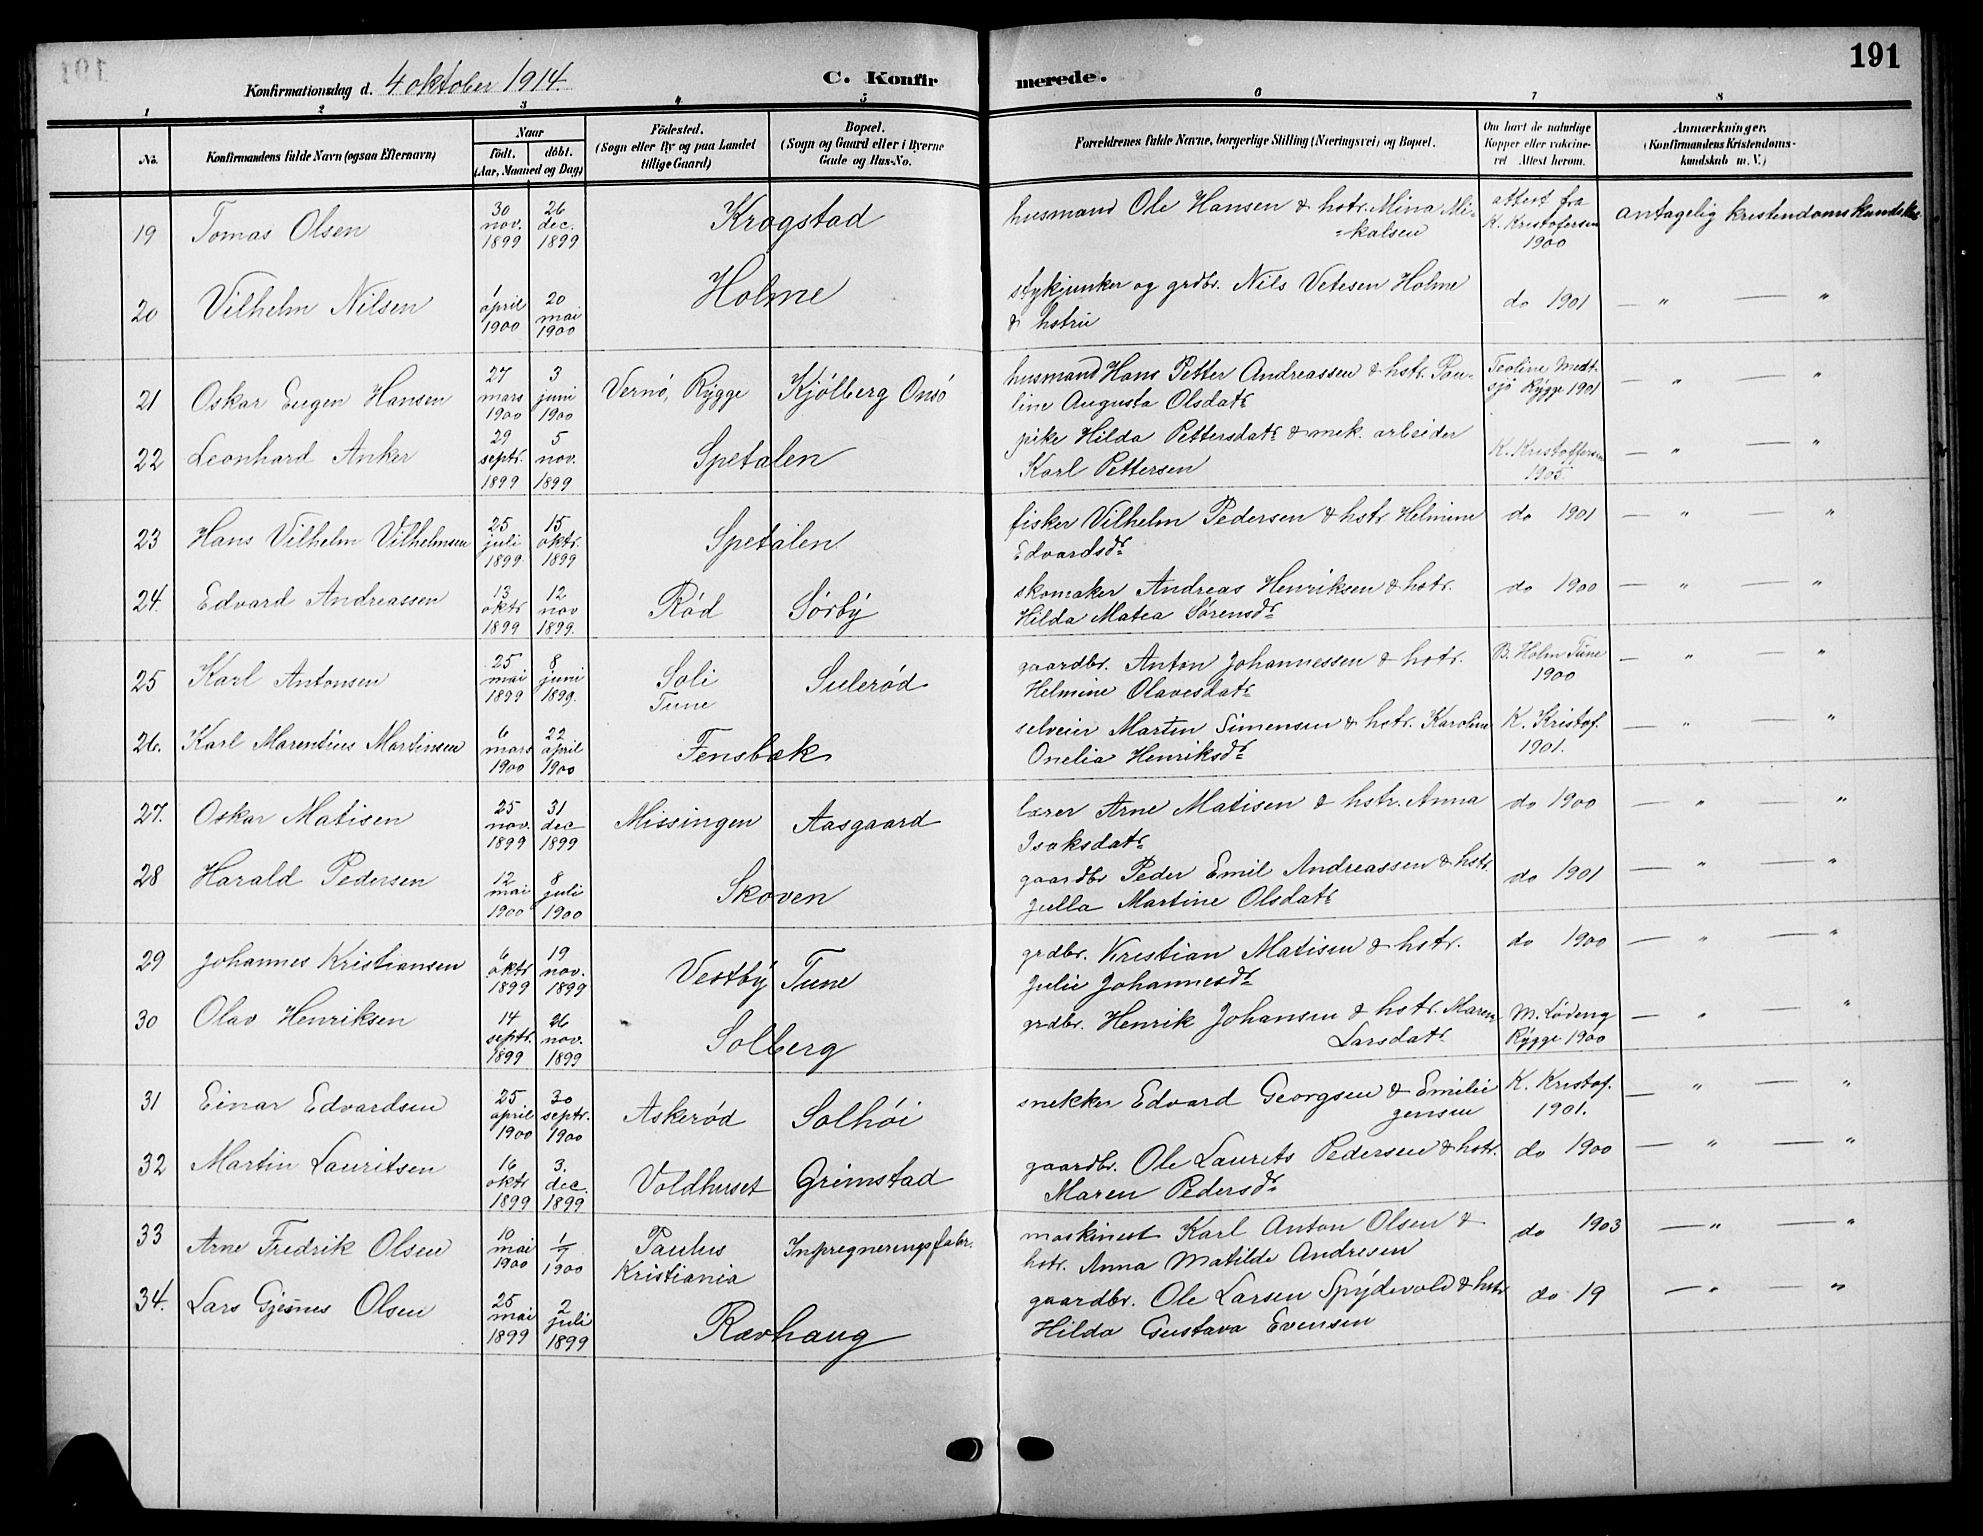 191
Konfirmationsdag d. 4 oktober 1914.
C. Konfirmerede.
1 2 3 4 5 6 7 8
No.
Konfirmandens fulde Navn (ogsaa Efternavn)
Naar
født. døbt.
(Aar, Maaned og Dag)
Fødested.
(Sogn eller By og paa Landet
tillige Gaard)
Bopæl.
(Sogn og Gaard eller i Byerne
Gade og Hus-No.
Forældrenes fulde Navne, borgerlige Stilling (Næringsvei) og Bopæl.
Om havt de naturlige
Kopper eller vakcine-
ret Attest herom.
Anmærkninger.
(Konfirmandens Kristendoms-
kundskab m. V.)
19 Tomas Olsen 30 nov. 1899 26 dec. 1899 Krogstad husmand Ole Hansen & hstr. Mina Mi-
kalsen attest fra K. Kristofersen 1900 antagelig kristendomskundskab
20 Vilhelm Nilsen 1 april 1900 20 mai 1900 Holme stykjunker og grdbr. Nils Vetesen Holme
& hstru do 1901 — " — "
21 Oskar Eugen Hansen 27 mars 1900 3 juni 1900 Vernø, Rygge Kjølberg Onsø husmand Hans Petter Andreassen & hstr. Pau-
line Augusta Olsdatr Teoline Medt-
sjø Rygge 1901 — " — "
22 Leonhard Anker 29 septr. 1899 5 nov. 1899 Spetalen pike Hilda Pettersdatr & anek. arbeider
Karl Pettersen K. Kristoffersen
1905. — " — "
23 Hans Vilhelm Vilhelmsen 25 juli 1899 15 oktr. 1899 Spetalen fisker Vilhelm Pedersen & hstr Helmine
Edvardsdr do 1901 — " — "
24. Edvard Andreassen 13 oktr 1899 12 nov 1899. Rød Sørby skomaker Andreas Henriksen & hstr.
Hilda Matea Sørensdr do 1900 — " — "
25 Karl Antonsen 25 mai 1899 8 juni 1899. Soli
Tune Sulerød gaardbr. Anton Johannessen & hstr.
Helmine Olavesdatr B. Holm Tune
1900 — " — "
26. Karl Marentius Martinsen 6 mars 1900 22 april 1900 Fensbæk selveier Martin Simensen & hstr. Karoline
Onelia Henriksdr K. Kristof.
1901. — " — "
27. Oskar Matisen 25 nov. 1899 31 dec 1899 Missingen Aasgaard lærer Arne Matisen & hstr. Anna
Isaksdatr do 1900 — " — "
28 Harald Pedersen 12 mai 1900 8 juli 1900 Skoven gaardbr Peder Emil Andreassen & hstr.
Julla Martine Olsdatr do 1901 — " — "
29 Johannes Kristiansen 6 oktr 1899 19 nov. 1899 Vestby Tune grdbr. Kristian Matisen & hstr.
Julie Johannesdr do 1900 — " — "
30 Olav Henriksen 14 septr. 1899 26 nov. 1899 Solberg grdbr. Henrik Johansen & hstr. Maren
Larsdatr M. Lødeng
Rygge 1900 — " — "
31 Einar Edvardsen 25 april 1900 30 septr. 1900 Askerød Solhøi snekker Edvard Georgsen & Emilie
Jensen K. Kristof.
1901. — " — "
32 Martin Lauritsen 16 oktr 1899 3. dec. 1899 Voldhuset Grimstad gaardbr. Ole Laurits Pedersen & hstr.
Maren Pedersdr do 1900 — " — "
33 Arne Fredrik Olsen 10 mai 1900 1/7 1900 Paulus
Kristiania Inpregneringsfabr. maskinist Karl Anton Olsen &
hstr. Anna Matilde Andresen do 1903 — " — "
34. Lars Gjesnes Olsen 25 mai 1899 2 juli 1899 Rævhaug gaardbr. Ole Larsen Spydevold & hstr
Hilda Gustava Evensen do 19 — " — "